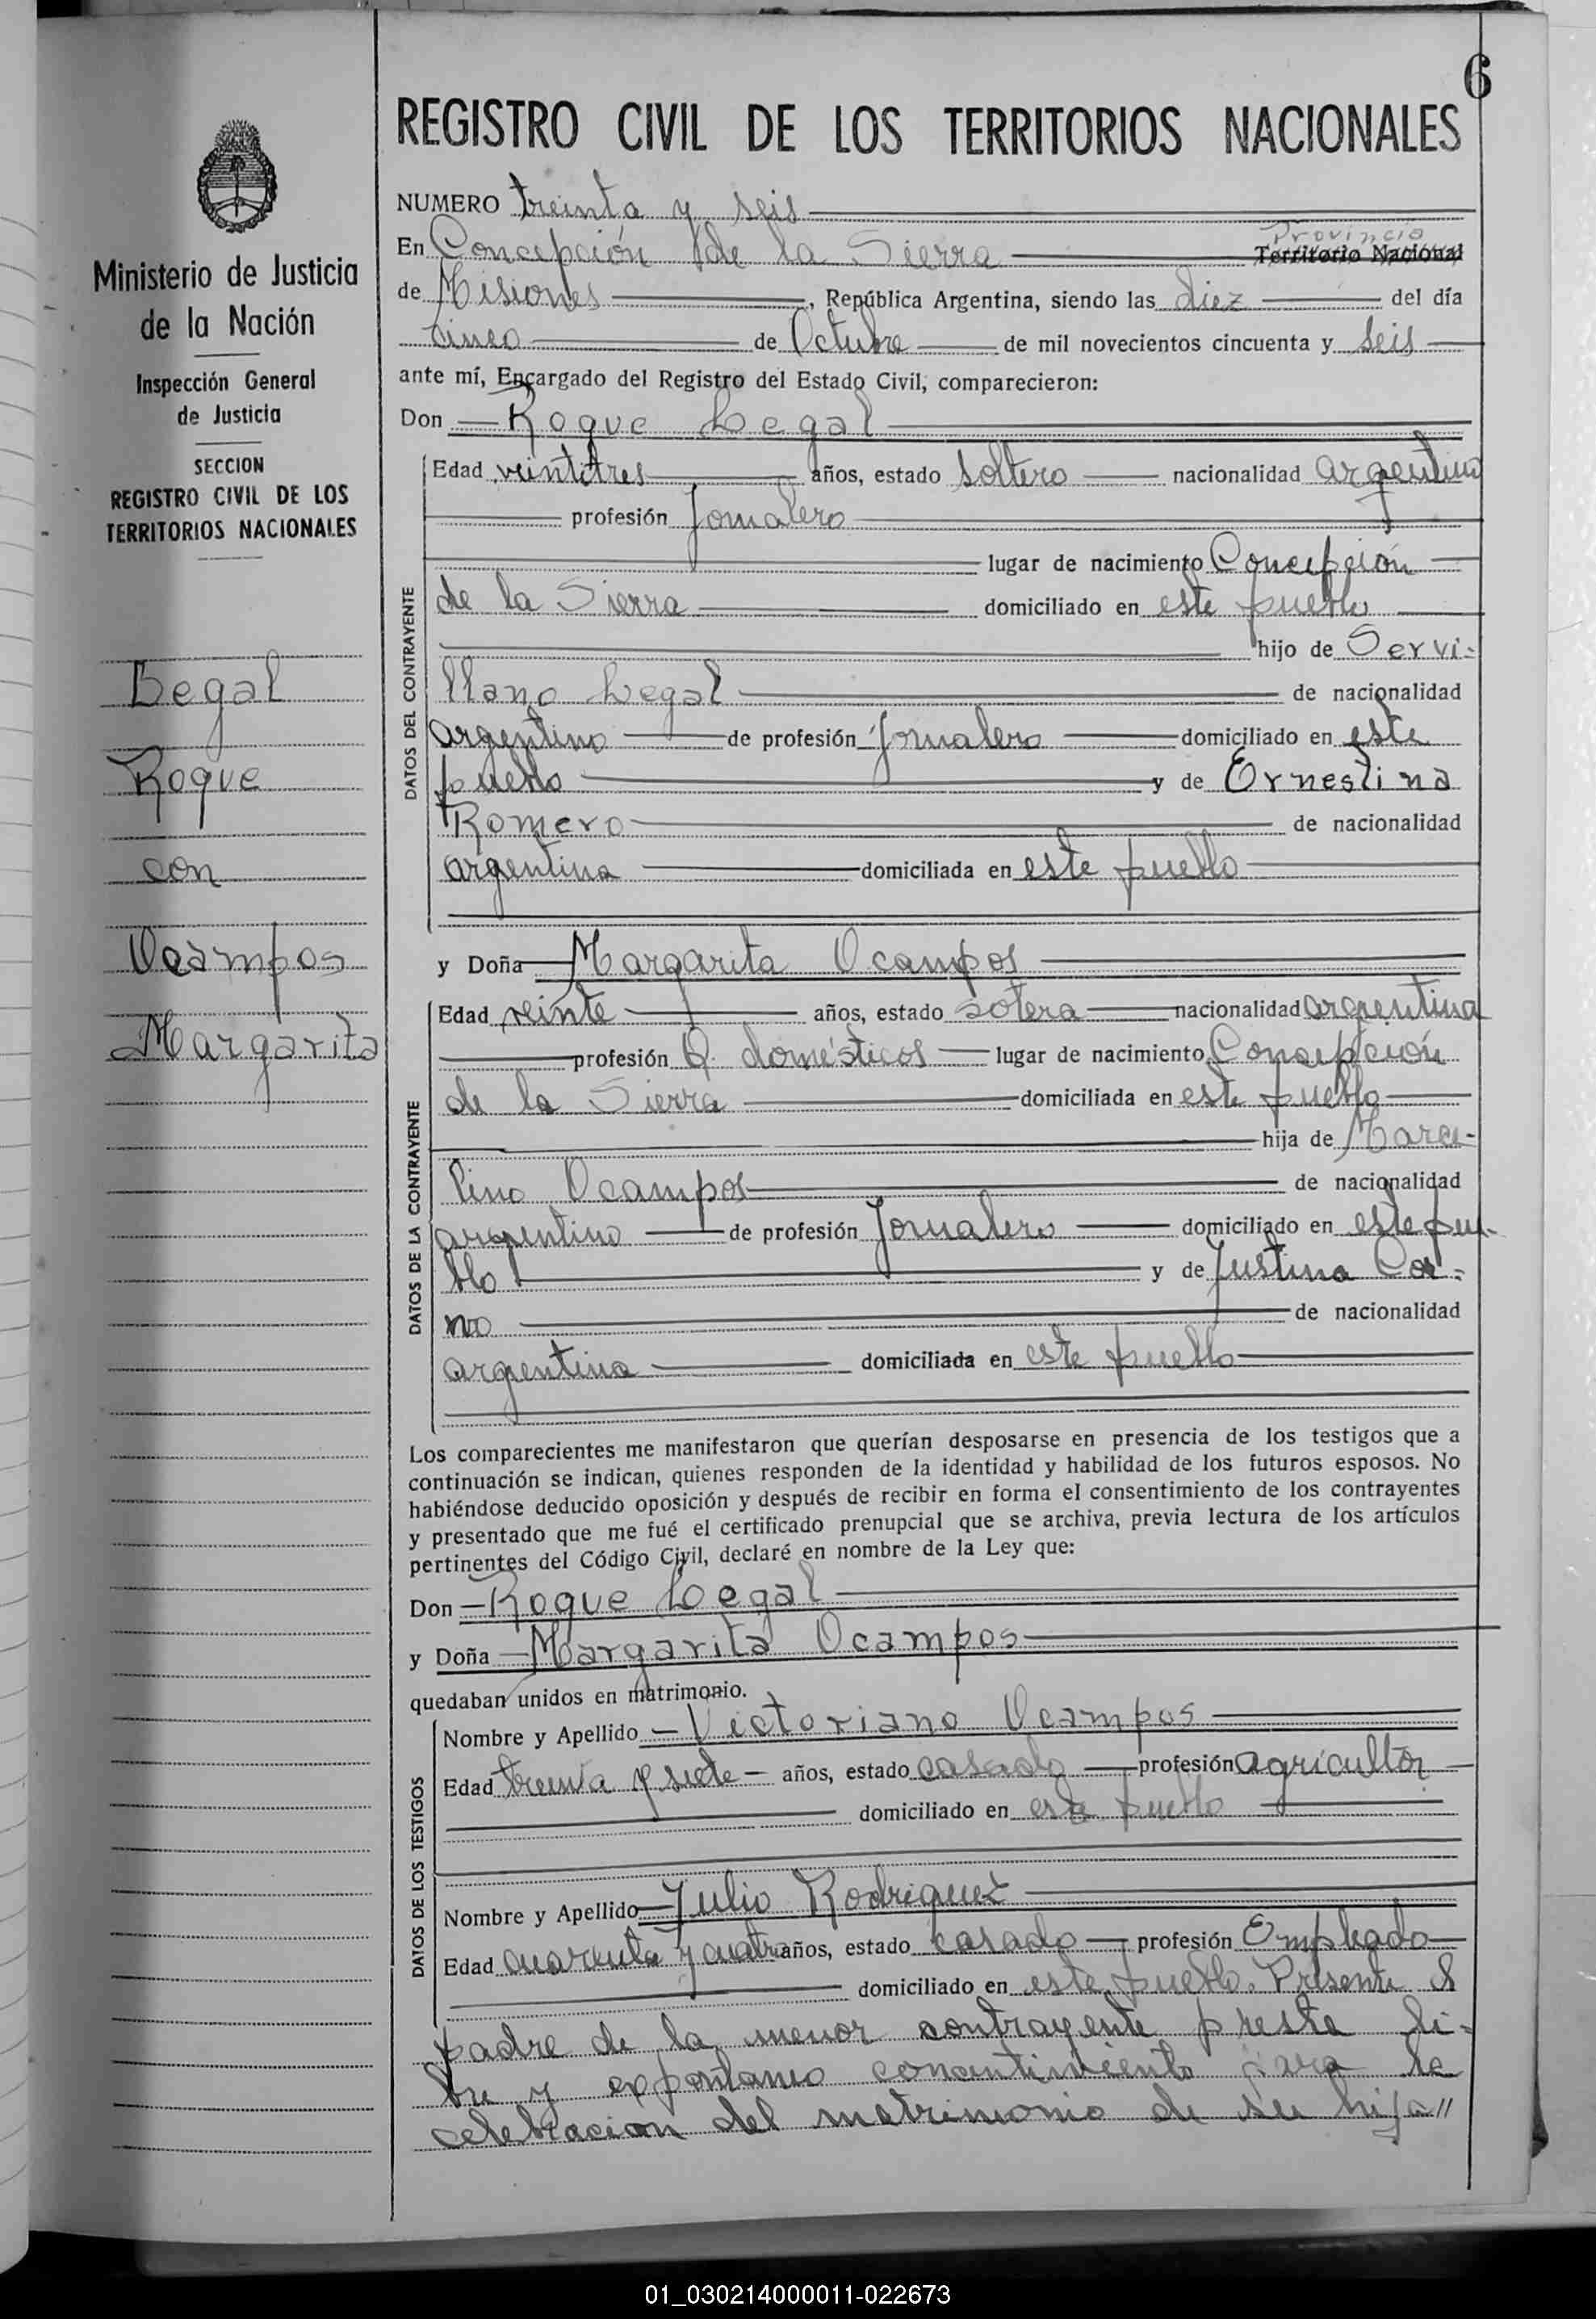 6
REGISTRO CIVIL DE LOS TERRITORIOS NACIONALES
Ministerio de Justicia
de la Nación
Inspección General
de Justicia
SECCION
REGISTRO CIVIL DE LOS
TERRITORIOS NACIONALES
Legal
Roque
con
Ocampos
Margarita
NUMERO treinta y seis
Provincia
En Concepción de la Sierra Territorio Nacional
de Misiones, República Argentina, siendo las diez del día
cinco de Octubre de mil novecientos cincuenta y seis
ante mí, Encargado del Registro del Estado Civil, comparecieron:
Don Roque Legal
DATOS DEL CONTRAYENTE
Edad veintitres años, estado soltero nacionalidad argentina
profesión Jornalero
lugar de nacimiento Concepción
de la Sierra domiciliado en este pueblo
hijo de Servi-
llano Legal de nacionalidad
argentino de profesión Jornalero domiciliado en este
pueblo y de Ernestina
Romero de nacionalidad
argentina domiciliada en este pueblo
y Doña Margarita Ocampos
DATOS DE LA CONTRAYENTE
Edad veinte años, estado sotera nacionalidad argentina
profesión Q. domésticos lugar de nacimiento Concepción
de la Sierra domiciliada en este pueblo
hija de Marce-
lino Ocampos de nacionalidad
argentino de profesión Jornalero domiciliado en este pue-
blo y de Justina
de nacionalidad
argentina domiciliada en este pueblo
Los comparecientes me manifestaron que querían desposarse en presencia de los testigos que a
continuación se indican, quienes responden de la identidad y habilidad de los futuros esposos. No
habiéndose deducido oposición y después de recibir en forma el consentimiento de los contrayentes
y presentado que me fué el certificado prenupcial que se archiva, previa lectura de los artículos
pertinentes del Código Civil, declaré en nombre de la Ley que:
Don Roque Legal
y Doña Margarita Ocampos
quedaban unidos en matrimonio.
DATOS DE LOS TESTIGOS
Nombre y Apellido Victoriano Ocampos
Edad treinta y siete años, estado casado profesión agricultor
domiciliado en este pueblo
Nombre y Apellido Julio Rodriguez
Edad cuarenta y cuatro años, estado casado profesión Empleado
domiciliado en este pueblo. Presente el
padre de la menor contrayente presta li-
bre y expontaneo concentimiento para la
celebracion del matrimonio de su hija"
01_030214000011-022673